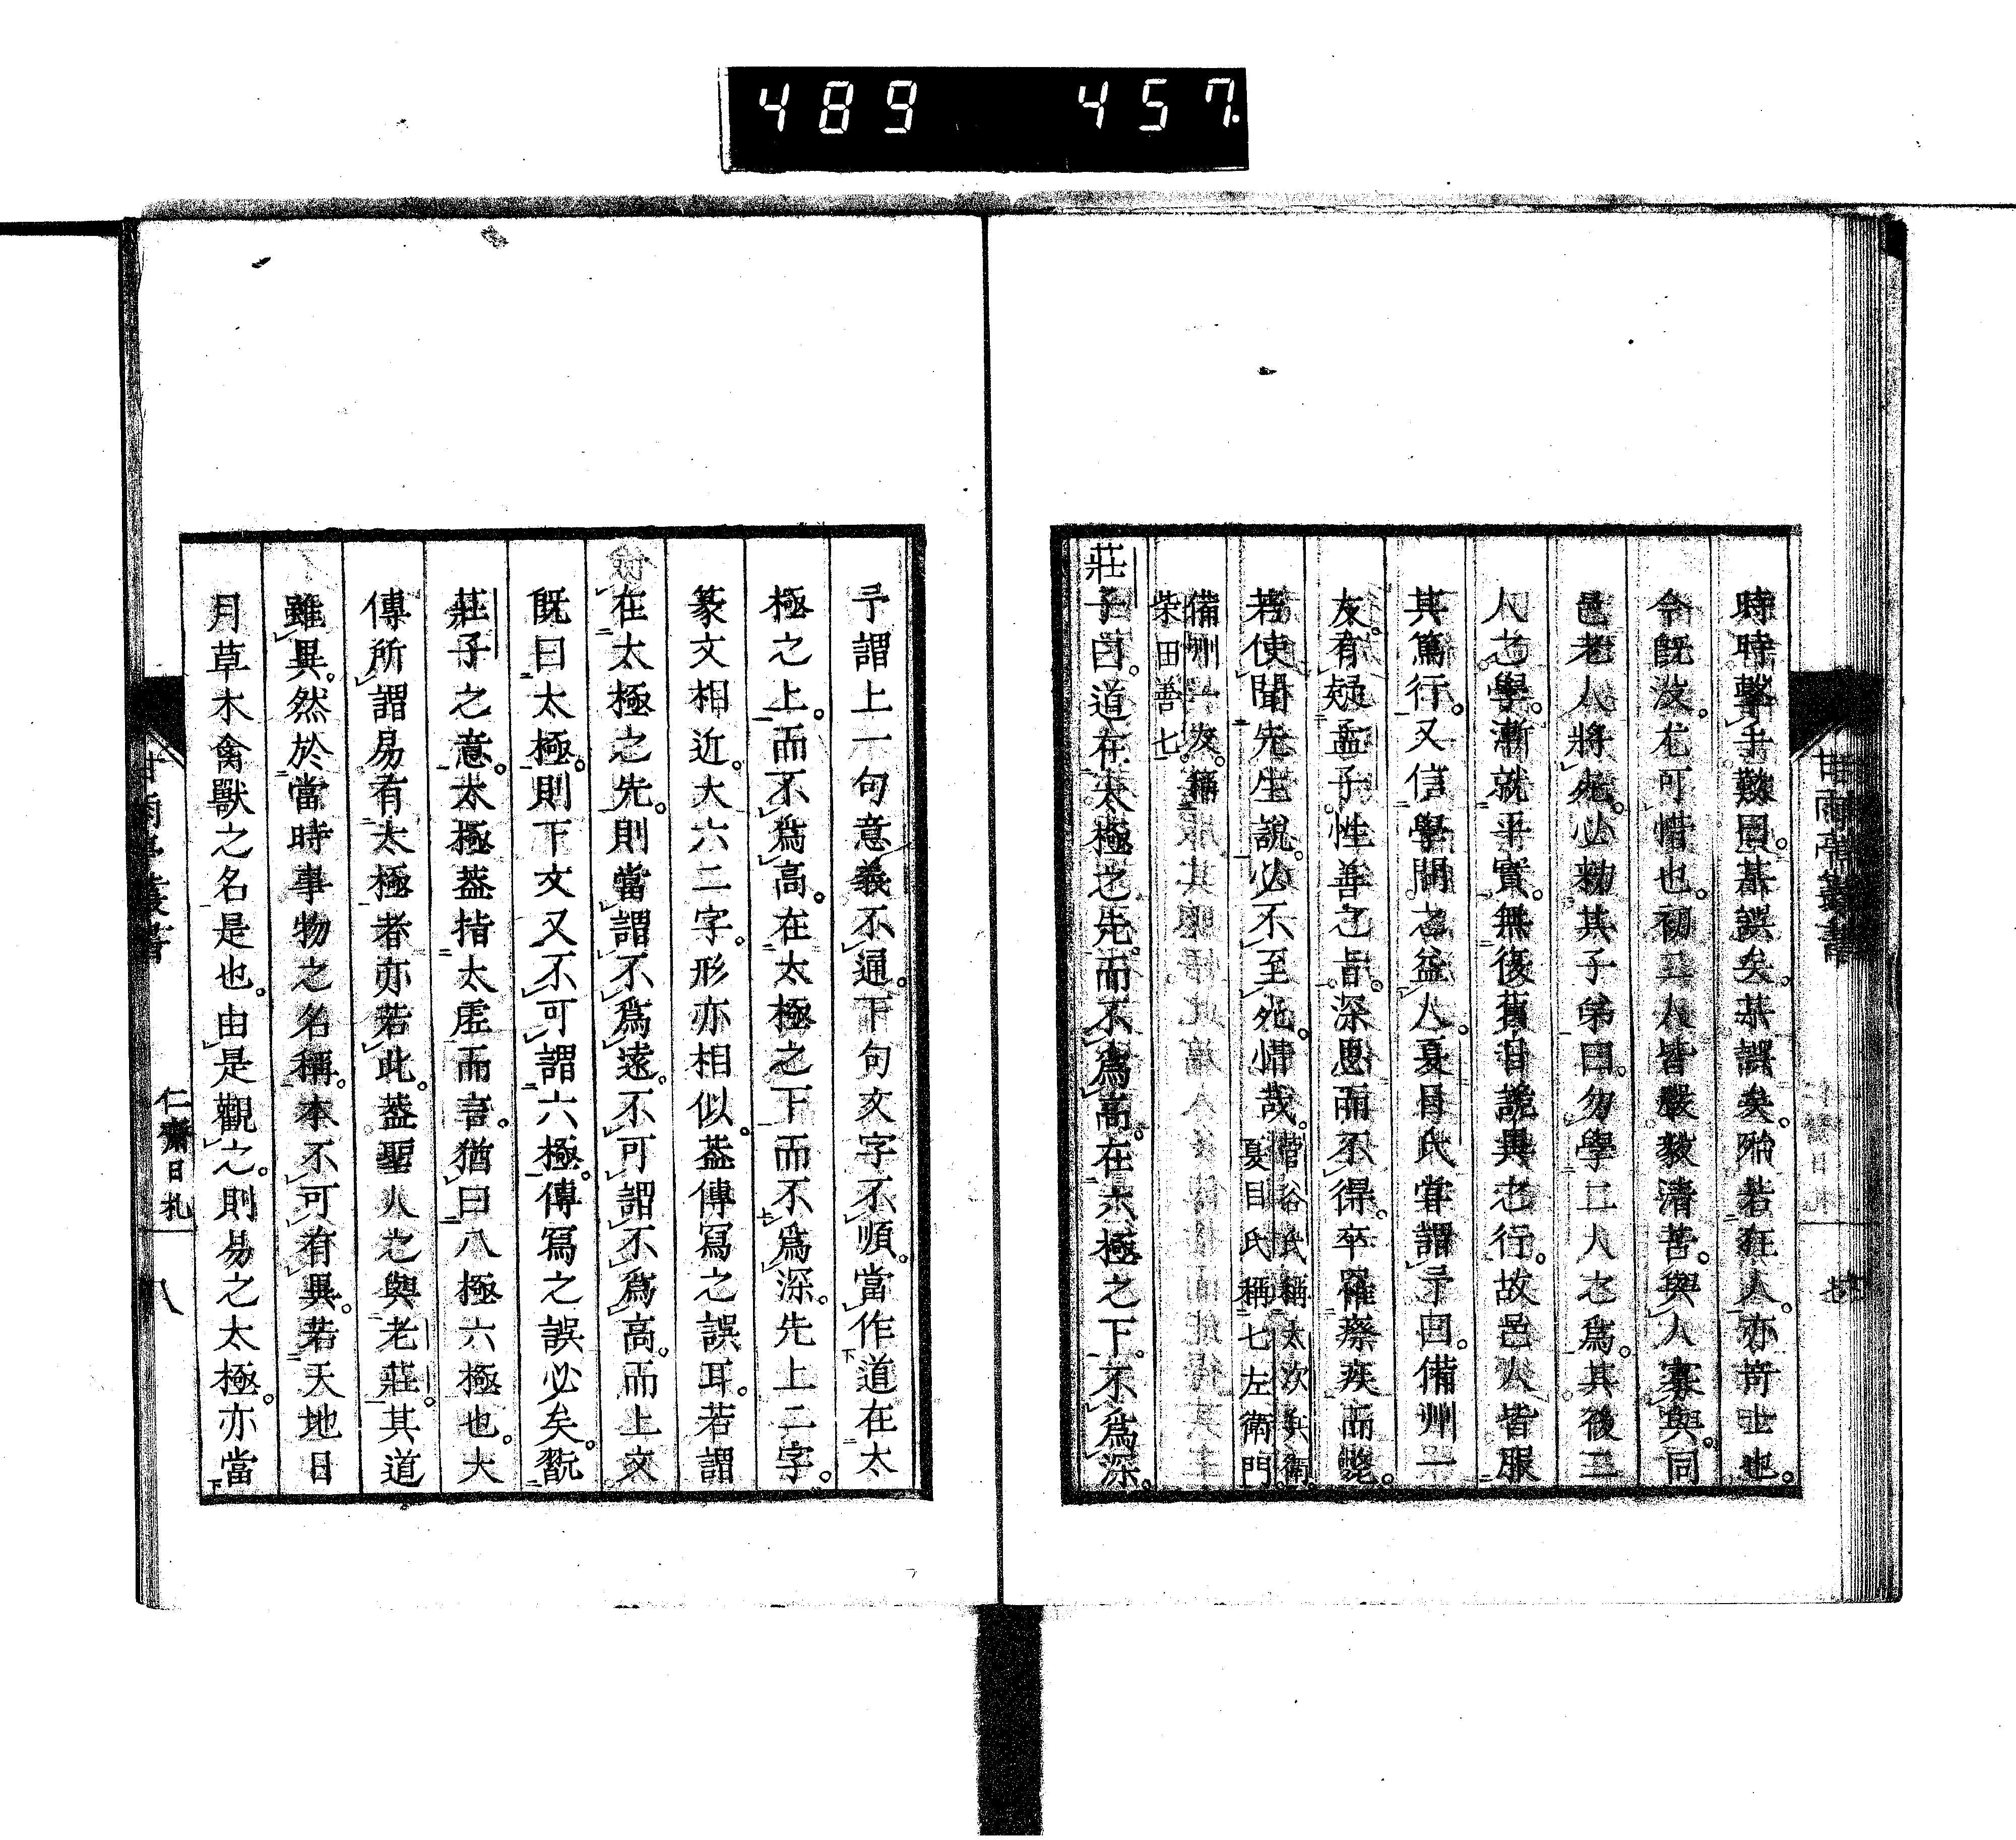 489 457
甘雨亭叢書
時時擊手歎困甚誤矣甚誤矣殆若狂人亦奇士也
今既沒尤可惜也初二人皆嚴毅清苦與人寡與同
邑老人將死必勑其子弟曰勿學二人之爲其後二
人之學漸就平實無復舊日詭異之行故邑人皆服
其篤行又信學問之益人夏目氏嘗謂予曰備州一
友有疑孟子性善之旨深思而不得卒羅療疾而斃
若使聞先生說必不至死惜哉菅谷氏稱太次兵衛
夏目氏稱七左衛門
備州一友稱
柴田善七
莊子曰道在太極之先而不爲高在六極之下不爲深
予謂上一句意義不通下句文字不順當作道在太
極之上而不爲高在太極之下而不爲深先上二字
篆文相近大六二字形亦相似葢傳寫之誤耳若謂
在太極之先則當謂不爲遠不可謂不爲高而上文
既曰太極則下文又不可謂六極傳寫之誤必矣翫
莊子之意太極葢指太虛而言猶曰八極六極也大
傳所謂易有太極者亦若此葢聖人之與老莊其道
雖異然於當時事物之名稱本不可有異若天地日
月草木禽獸之名是也由是觀之則易之太極亦當
甘雨亭叢書
仁齋日札
八